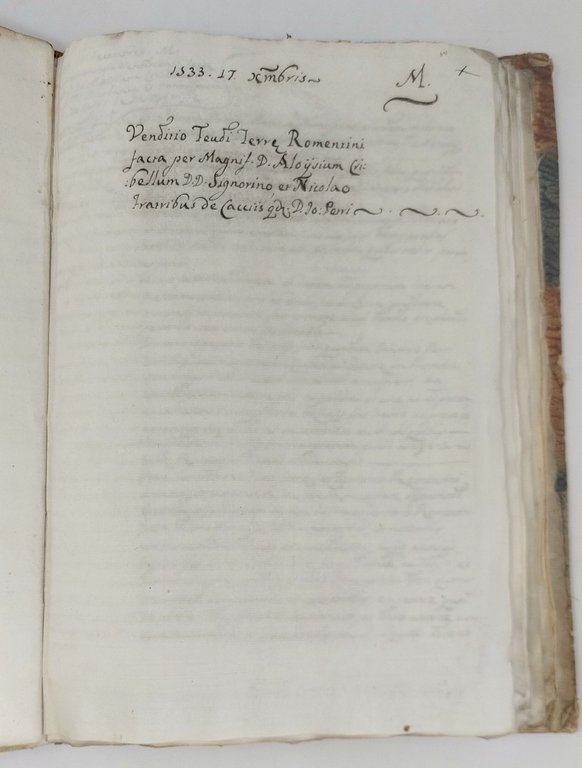 1533. 17. Xmbris
M.
Venditio Feudi Terrę Romentini
facta per Magnif. D. Aloÿsium Cri:
:bellum D.D. Signorino et Nicolao
fratribus de Cacciis qd: D. Jo: Petri